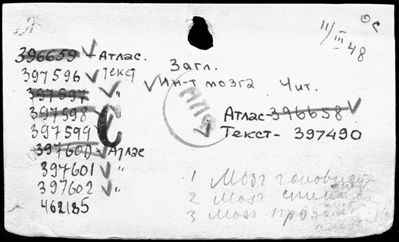 11/III 48
396659 ✓ Атлас.
397596 ✓ Текст
397597 ✓ "
397598
397599
397600 ✓ Атлас
397601 ✓ "
397602 ✓ "
462185
Загл.
✓ Ин-т мозга Чит.
Атлас-396658 ✓
✓ Текст- 397490
1 Мозг головной
2 Мозг спинной
3 Мозг